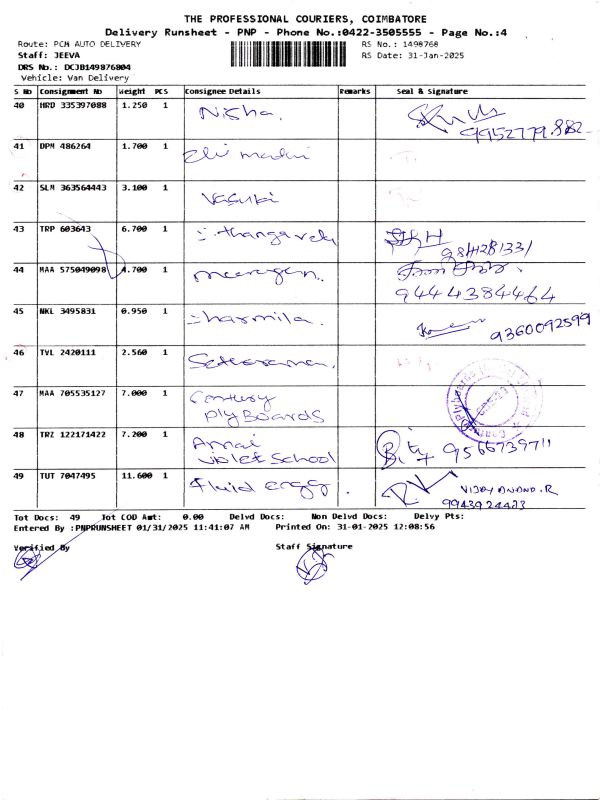 THE PROFESSIONAL COURIERS, COIMBATORE
Delivery Runsheet - PNP - Phone No.:0422-3505555 - Page No.:4
Route: PCM AUTO DELIVERY RS No.: 1498768
Staff: JEEVA RS Date: 31-Jan-2025
DRS No.: DCJB149876804
Vehicle: Van Delivery
S No Consignment No Weight PCS Consignee Details Remarks Seal & Signature
40 HRD 335397088 1.250 1 Nisha.
9952779882
41 DPM 486264 1.700 1
42 SLM 363564443 3.100 1 Vasuki
43 TRP 603643 6.700 1 thangavel
44 MAA 575049098 4.700 1
9444384464
45 NKL 3495831 0.950 1 sharmila.
9360092599
46 TVL 2420111 2.560 1
47 MAA 705535127 7.000 1 Century
Ply Boards
48 TRZ 122171422 7.200 1
violet School 9566739711
49 TUT 7047495 11.600 1 Fluid
VIJAY ANAND.R
9943924473
Tot Docs: 49 Tot COD Amt: 0.00 Delvd Docs: Non Delvd Docs: Delvy Pts:
Entered By :PNPRUNSHEET 01/31/2025 11:41:07 AM Printed On: 31-01-2025 12:08:56
Verified By Staff Signature